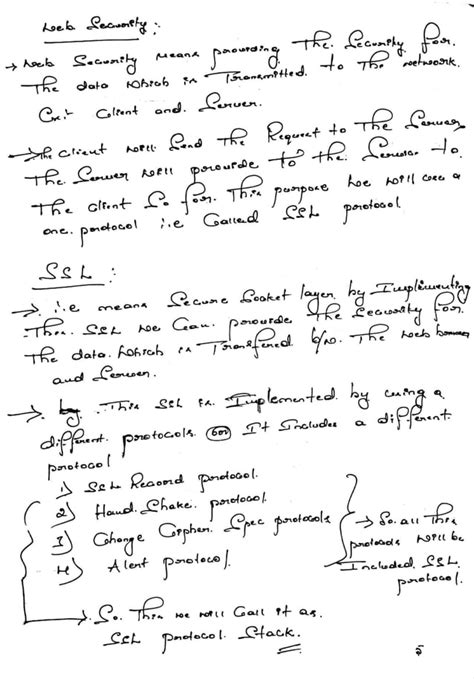 Web Security :
→ Web Security means providing The Security for.
The data which is Transmitted. to The network.
Ex:- Client and Server.
→ The client will Send The Request to The Server
The Server will provide to the Service to
The client So for. This purpose we will use a
one protocol i.e Called SSL protocol
SSL :
→ i.e means Secure Socket layer by Implementing
This. SSL we Can. provide The Security for
The data. which is Transfered b/w. The web browser
and Server.
→ This SSL is. Implemented by using a
different protocols (or) It Includes a different
protocol
1) SSL Record protocol.
2) Hand. Shake. protocol.
3) Change Cipher. Spec protocols
4) Alert protocol.
→ So. all This
protocols will be
Included. SSL
protocol.
→ So. This we will Call it as
SSL protocol Stack.
5